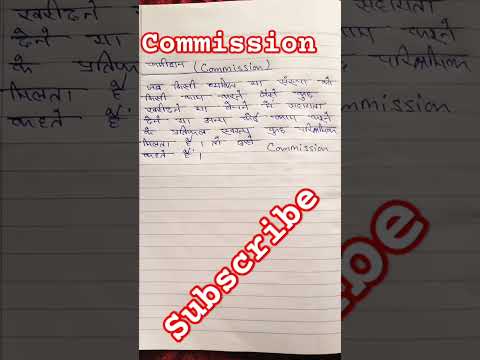 Commission
कमीशन (Commission)
जब किसी व्यक्ति या संस्था को
किसी काम करने जैसे कुछ
खरीदने या बेचने में सहायता
देने या अन्य कोई काम करने
के प्रतिफल स्वरूप कुछ पारिश्रमिक
मिलता है । तो उसे Commission
कहते हैं ।
Subscribe